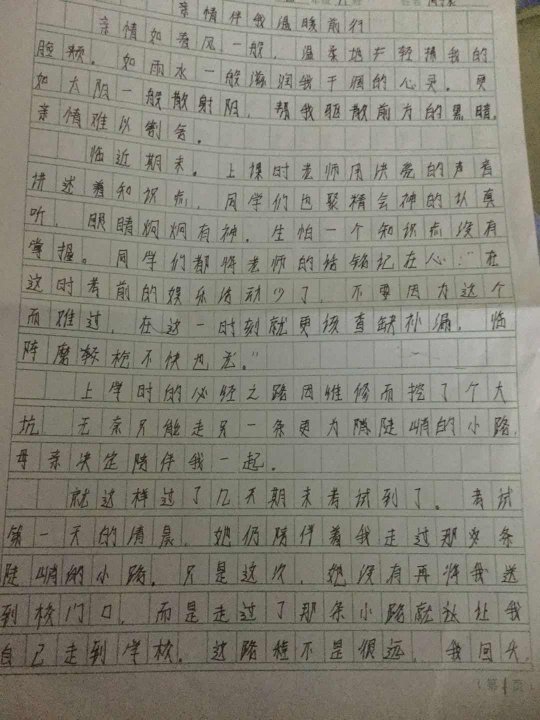 亲情伴我温暖前行
亲情如春风一般，温柔地声轻拂我的
脸颊。如雨水一般滋润我干涸的心灵。更
如太阳一般散射阳，帮我驱散前方的黑暗。
亲情难以割舍。
临近期末。上课时老师用洪亮的声音
讲述着知识点，同学们也聚精会神的认真
听，眼睛炯炯有神。生怕一个知识点没有
掌握。同学们都将老师的话铭记在心："在
这时考前的娱乐活动少了，不要因为这个
而难过，在这一时刻就更该查缺补漏，临
阵磨枪不快也光。"
上学时的必经之路因维修而挖了个大
坑，无奈只能走另一条更为陡峭的小路，
母亲决定陪伴我一起。
就这样过了几天期末考试到了。考试
第一天的清晨，她仍陪伴着我走过那条
陡峭的小路。只是这次，她没有再将我送
到校门口，而是走过了那条小路就让我
自己走到学校。这路程不是很远，我回头
第1页